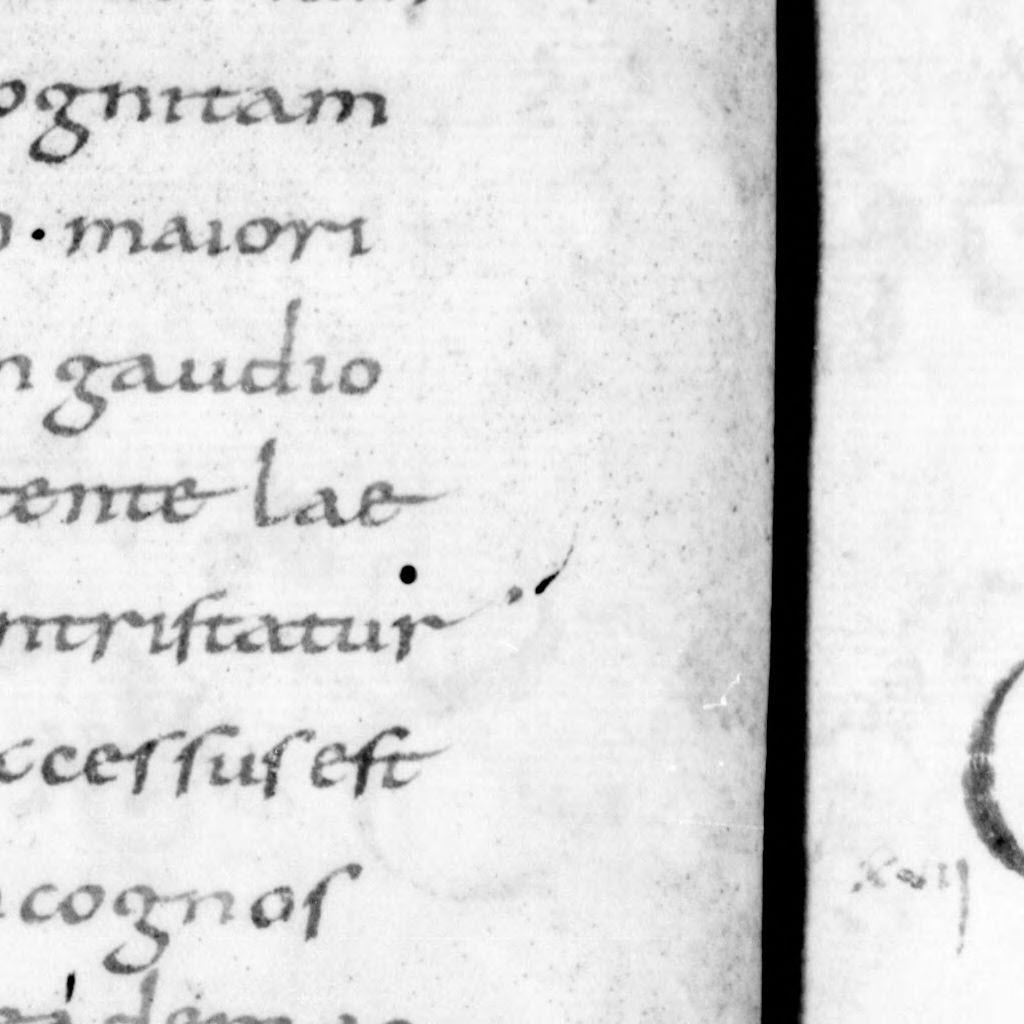 ognitam
· maiori
gaudio
tente lae
ntristatur
ccessus est
cognos
xvij